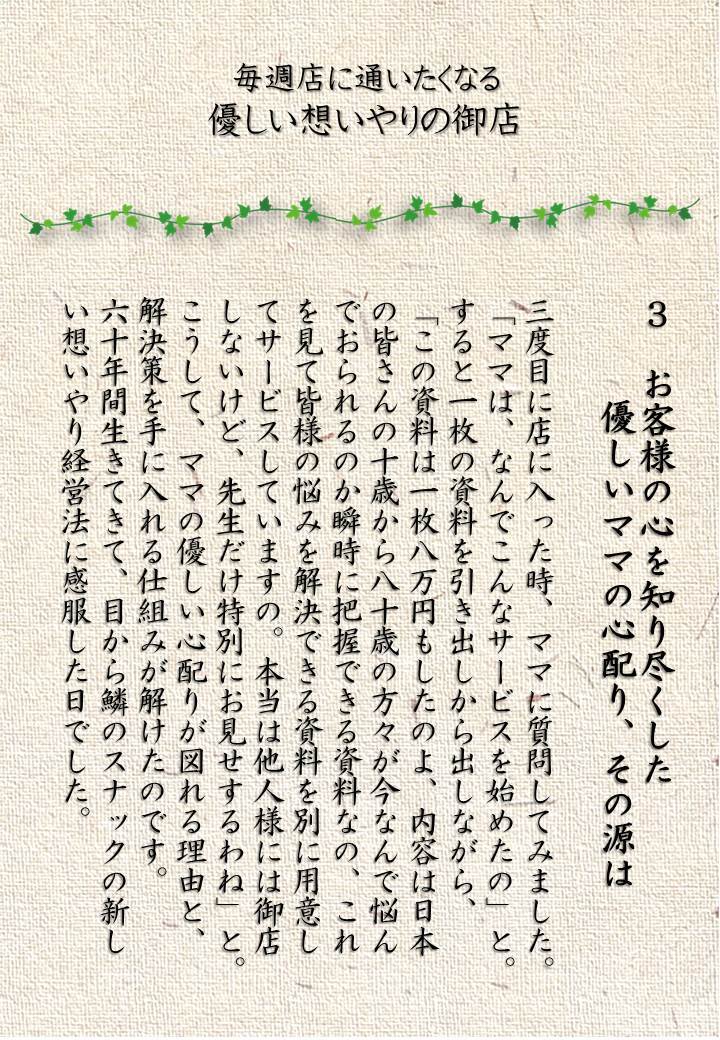 毎週店に通いたくなる
優しい想いやりの御店
3 お客様の心を知り尽くした
優しいママの心配り、その源は
三度目に店に入った時、ママに質問してみました。
「ママは、なんでこんなサービスを始めたの」と。
すると一枚の資料を引き出しから出しながら、
「この資料は一枚八万円もしたのよ、内容は日本
の皆さんの十歳から八十歳の方々が今なんで悩ん
でおられるのか瞬時に把握できる資料なの、これ
を見て皆様の悩みを解決できる資料を別に用意し
てサービスしていますの。本当は他人様には御店
しないけど、先生だけ特別にお見せするわね」と。
こうして、ママの優しい心配りが図れる理由と、
解決策を手に入れる仕組みが解けたのです。
六十年間生きてきて、目から鱗のスナックの新し
い想いやり経営法に感服した日でした。